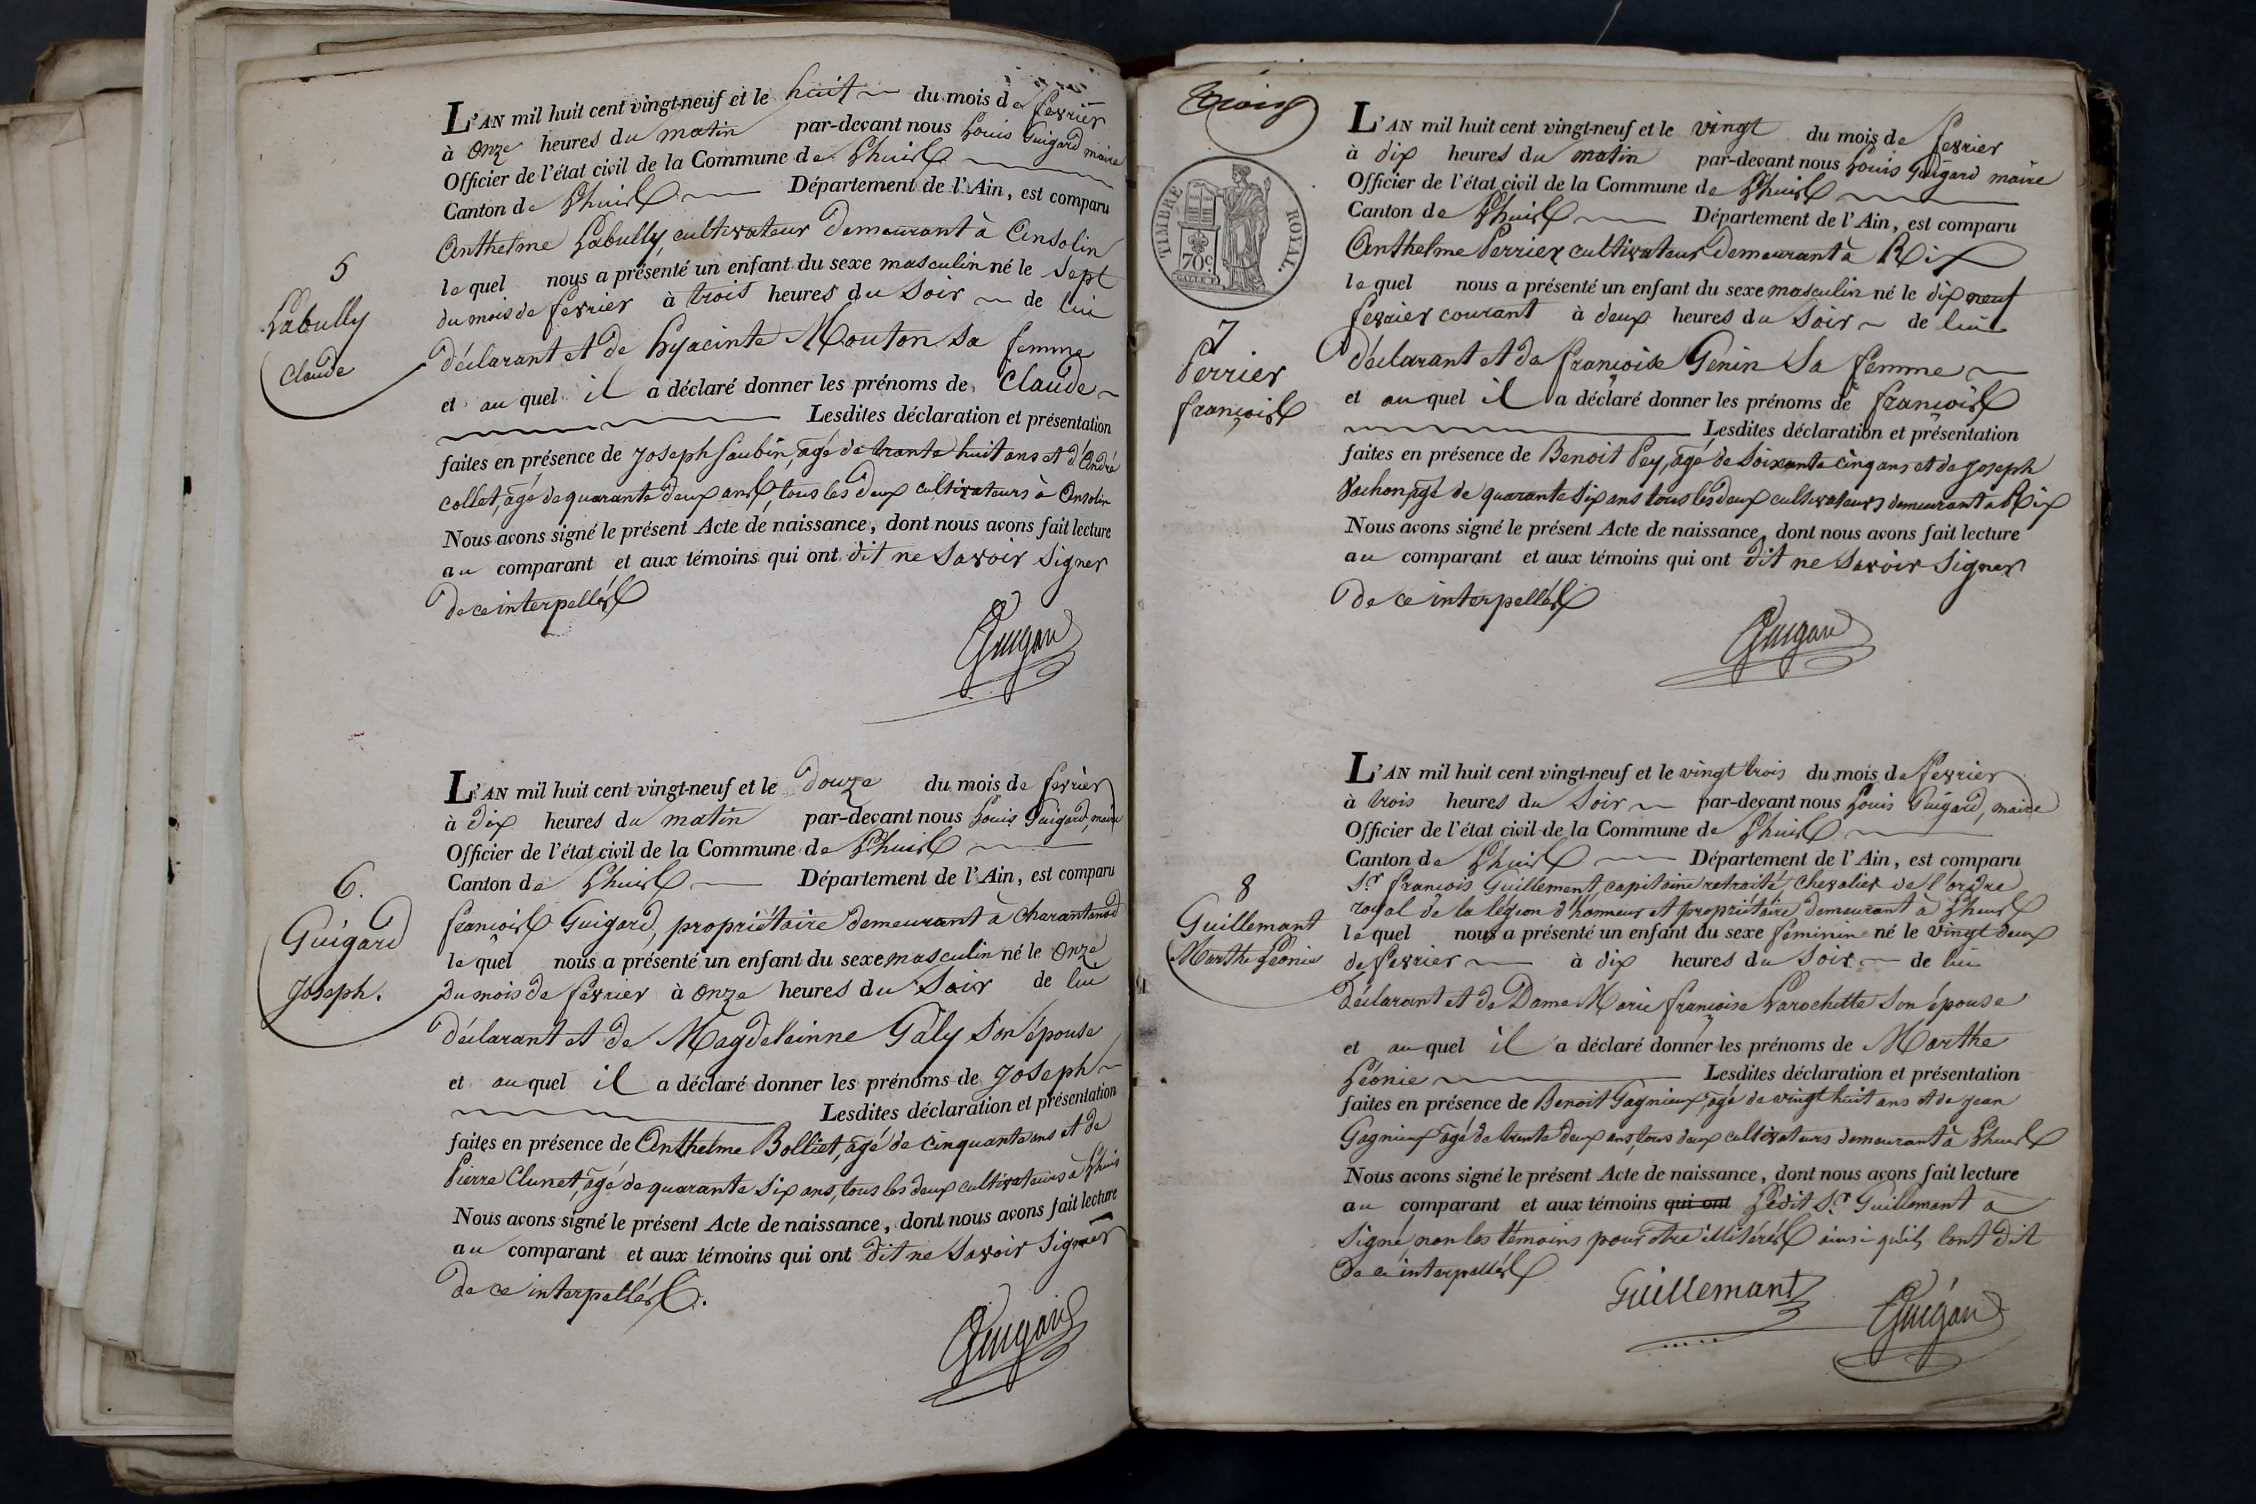 5
Labully
Claude
L'AN mil huit cent vingt-neuf et le huit du mois de fevrier
à onze heures du matin par-devant nous Louis Guigard maire
Officier de l'état civil de la Commune de Lhuis
Canton de Lhuis Département de l'Ain, est comparu
Anthelme Labully, cultivateur demeurant à Ansolin
lequel nous a présenté un enfant du sexe masculin né le sept
du mois de fevrier à trois heures du soir de lui
déclarant et de hyacinte Mouton sa femme
et auquel il a déclaré donner les prénoms de Claude
Lesdites déclaration et présentation
faites en présence de Joseph Saubin, agé de trante huit ans et d'André
collet, agé de quarante deux ans, tous les deux cultivateurs à Ansolin
Nous avons signé le présent Acte de naissance, dont nous avons fait lecture
au comparant et aux témoins qui ont dit ne savoir signer
de ce interpellés
Guigard
6.
Guigard
Joseph.
L'AN mil huit cent vingt-neuf et le douze du mois de fevrier
à dix heures du matin par-devant nous Louis Guigard, maire
Officier de l'état civil de la Commune de Lhuis
Canton de Lhuis Département de l'Ain, est comparu
françois Guigard, propriétaire demeurant à Charantenod
lequel nous a présenté un enfant du sexe masculin né le onze
du mois de fevrier à onze heures du soir de lui
déclarant et de Magdeleinne Gâly son épouse
et auquel il a déclaré donner les prénoms de Joseph
Lesdites déclaration et présentation
faites en présence de Anthelme Bolliet, agé de cinquante ans et de
Pierre Clunet, agé de quarante six ans, tous les deux cultivateurs à Lhuis
Nous avons signé le présent Acte de naissance, dont nous avons fait lecture
au comparant et aux témoins qui ont dit ne savoir signer
de ce interpellés.
Guigard
trois
TIMBRE ROYAL.
70c
7
Perrier
françois
L'AN mil huit cent vingt-neuf et le vingt du mois de fevrier
à dix heures du matin par-devant nous Louis Guigard maire
Officier de l'état civil de la Commune de Lhuis
Canton de Lhuis Département de l'Ain, est comparu
Anthelme Perrier cultivateur demeurant à Rix
lequel nous a présenté un enfant du sexe masculin né le dix neuf
fevrier courant à deux heures du soir de lui
déclarant et de françoise Genin sa femme
et auquel il a déclaré donner les prénoms de françois
Lesdites déclaration et présentation
faites en présence de Benoit Pey, agé de soixante cinq ans et de Joseph
Vachon agé de quarante six ans tous les deux cultivateurs demeurant à Rix
Nous avons signé le présent Acte de naissance, dont nous avons fait lecture
au comparant et aux témoins qui ont dit ne savoir signer
de ce interpellés
Guigard
8
Guillemant
Marthe Léonie
L'AN mil huit cent vingt-neuf et le vingt trois du mois de fevrier
à trois heures du soir par-devant nous Louis Guigard, maire
Officier de l'état civil de la Commune de Lhuis
Canton de Lhuis Département de l'Ain, est comparu
Sr. françois Guillement, capitaine retraité, Chevalier de l'ordre
royal de la légion d'honneur et propriétaire demeurant à Lhuis
lequel nous a présenté un enfant du sexe feminin né le vingt deux
de fevrier à dix heures du soir de lui
déclarant et de Dame Marie françoise Larochette son épouse
et auquel il a déclaré donner les prénoms de Marthe
Léonie Lesdites déclaration et présentation
faites en présence de Benoit Gagnieux, agé de vingt huit ans et de jean
Gagnieux agé de trente deux ans, tous deux cultivateurs demeurant à Lhuis
Nous avons signé le présent Acte de naissance, dont nous avons fait lecture
au comparant et aux témoins qui ont Ledit Sr. Guillemant a
signé, non les témoins pour être illitérés ainsi qu'ils l'ont dit
de ce interpellés
Guillemant Guigard